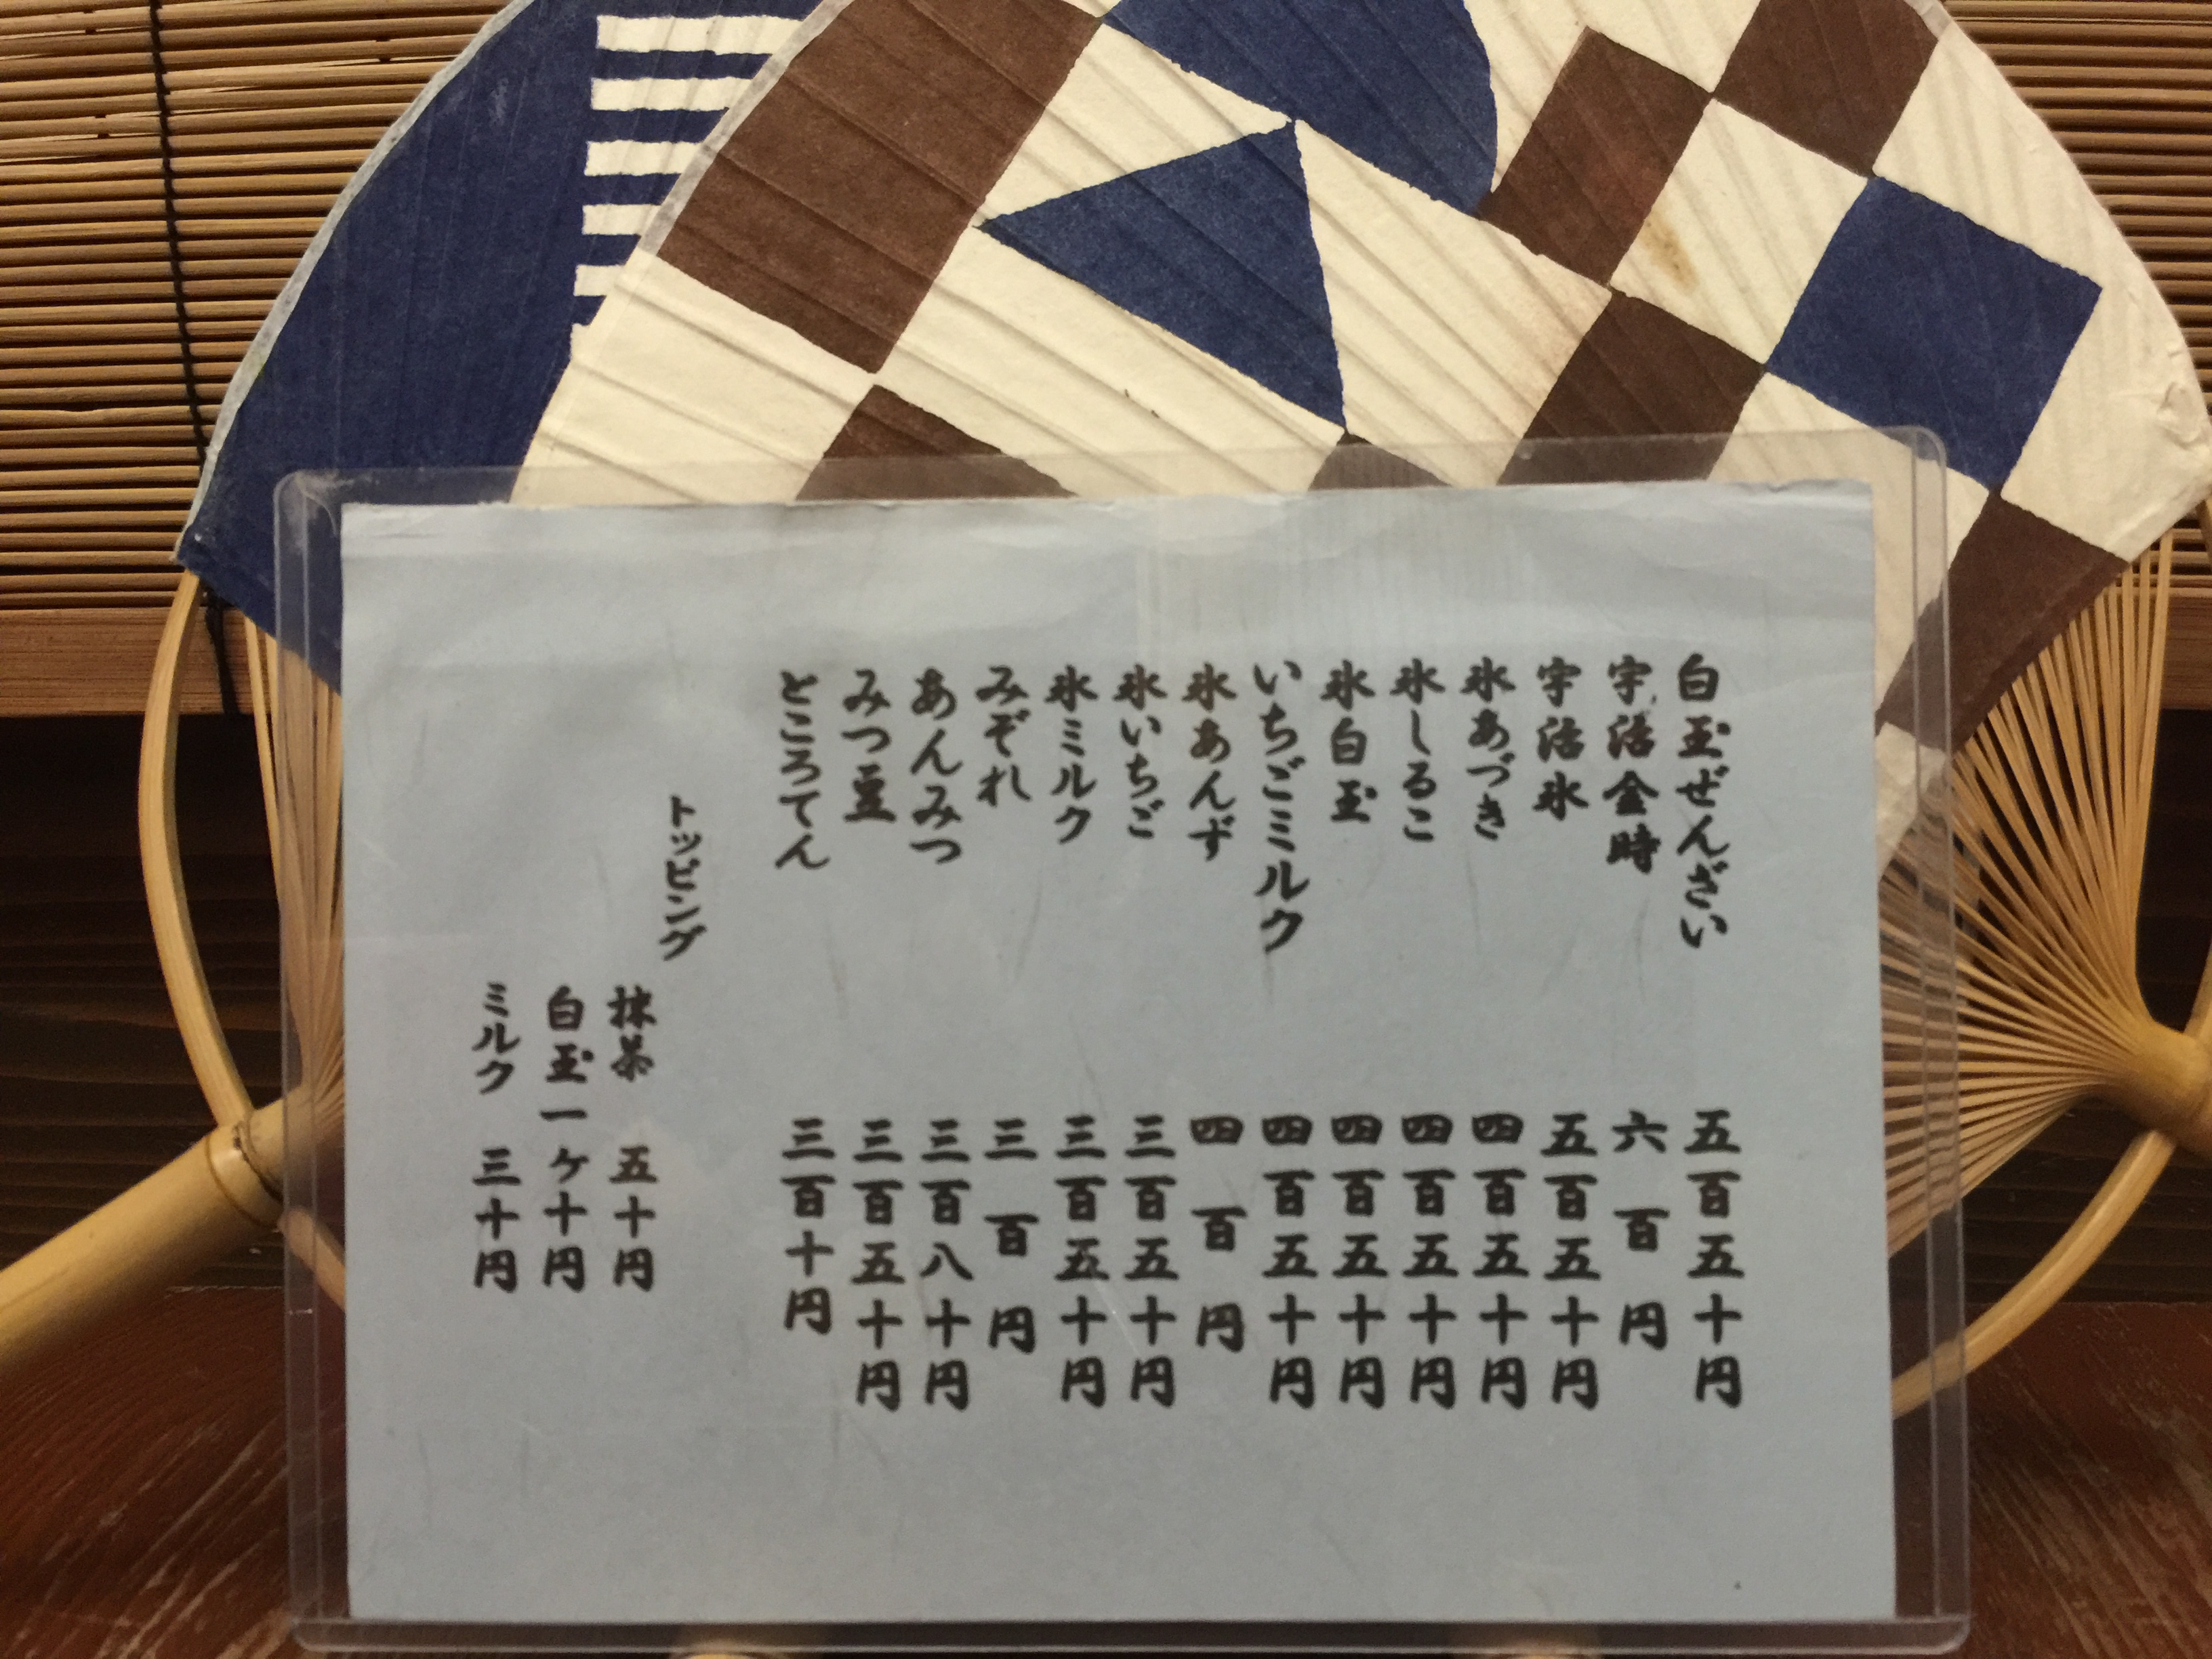 白玉ぜんざい 五百五十円
宇治金時 六百円
宇治氷 五百五十円
氷あづき 四百五十円
氷しるこ 四百五十円
氷白玉 四百五十円
いちごミルク 四百五十円
氷あんず 四百円
氷いちご 三百五十円
氷ミルク 三百五十円
みぞれ 三百円
あんみつ 三百八十円
みつ豆 三百五十円
ところてん 三百十円
トッピング
抹茶 五十円
白玉一ヶ十円
ミルク 三十円